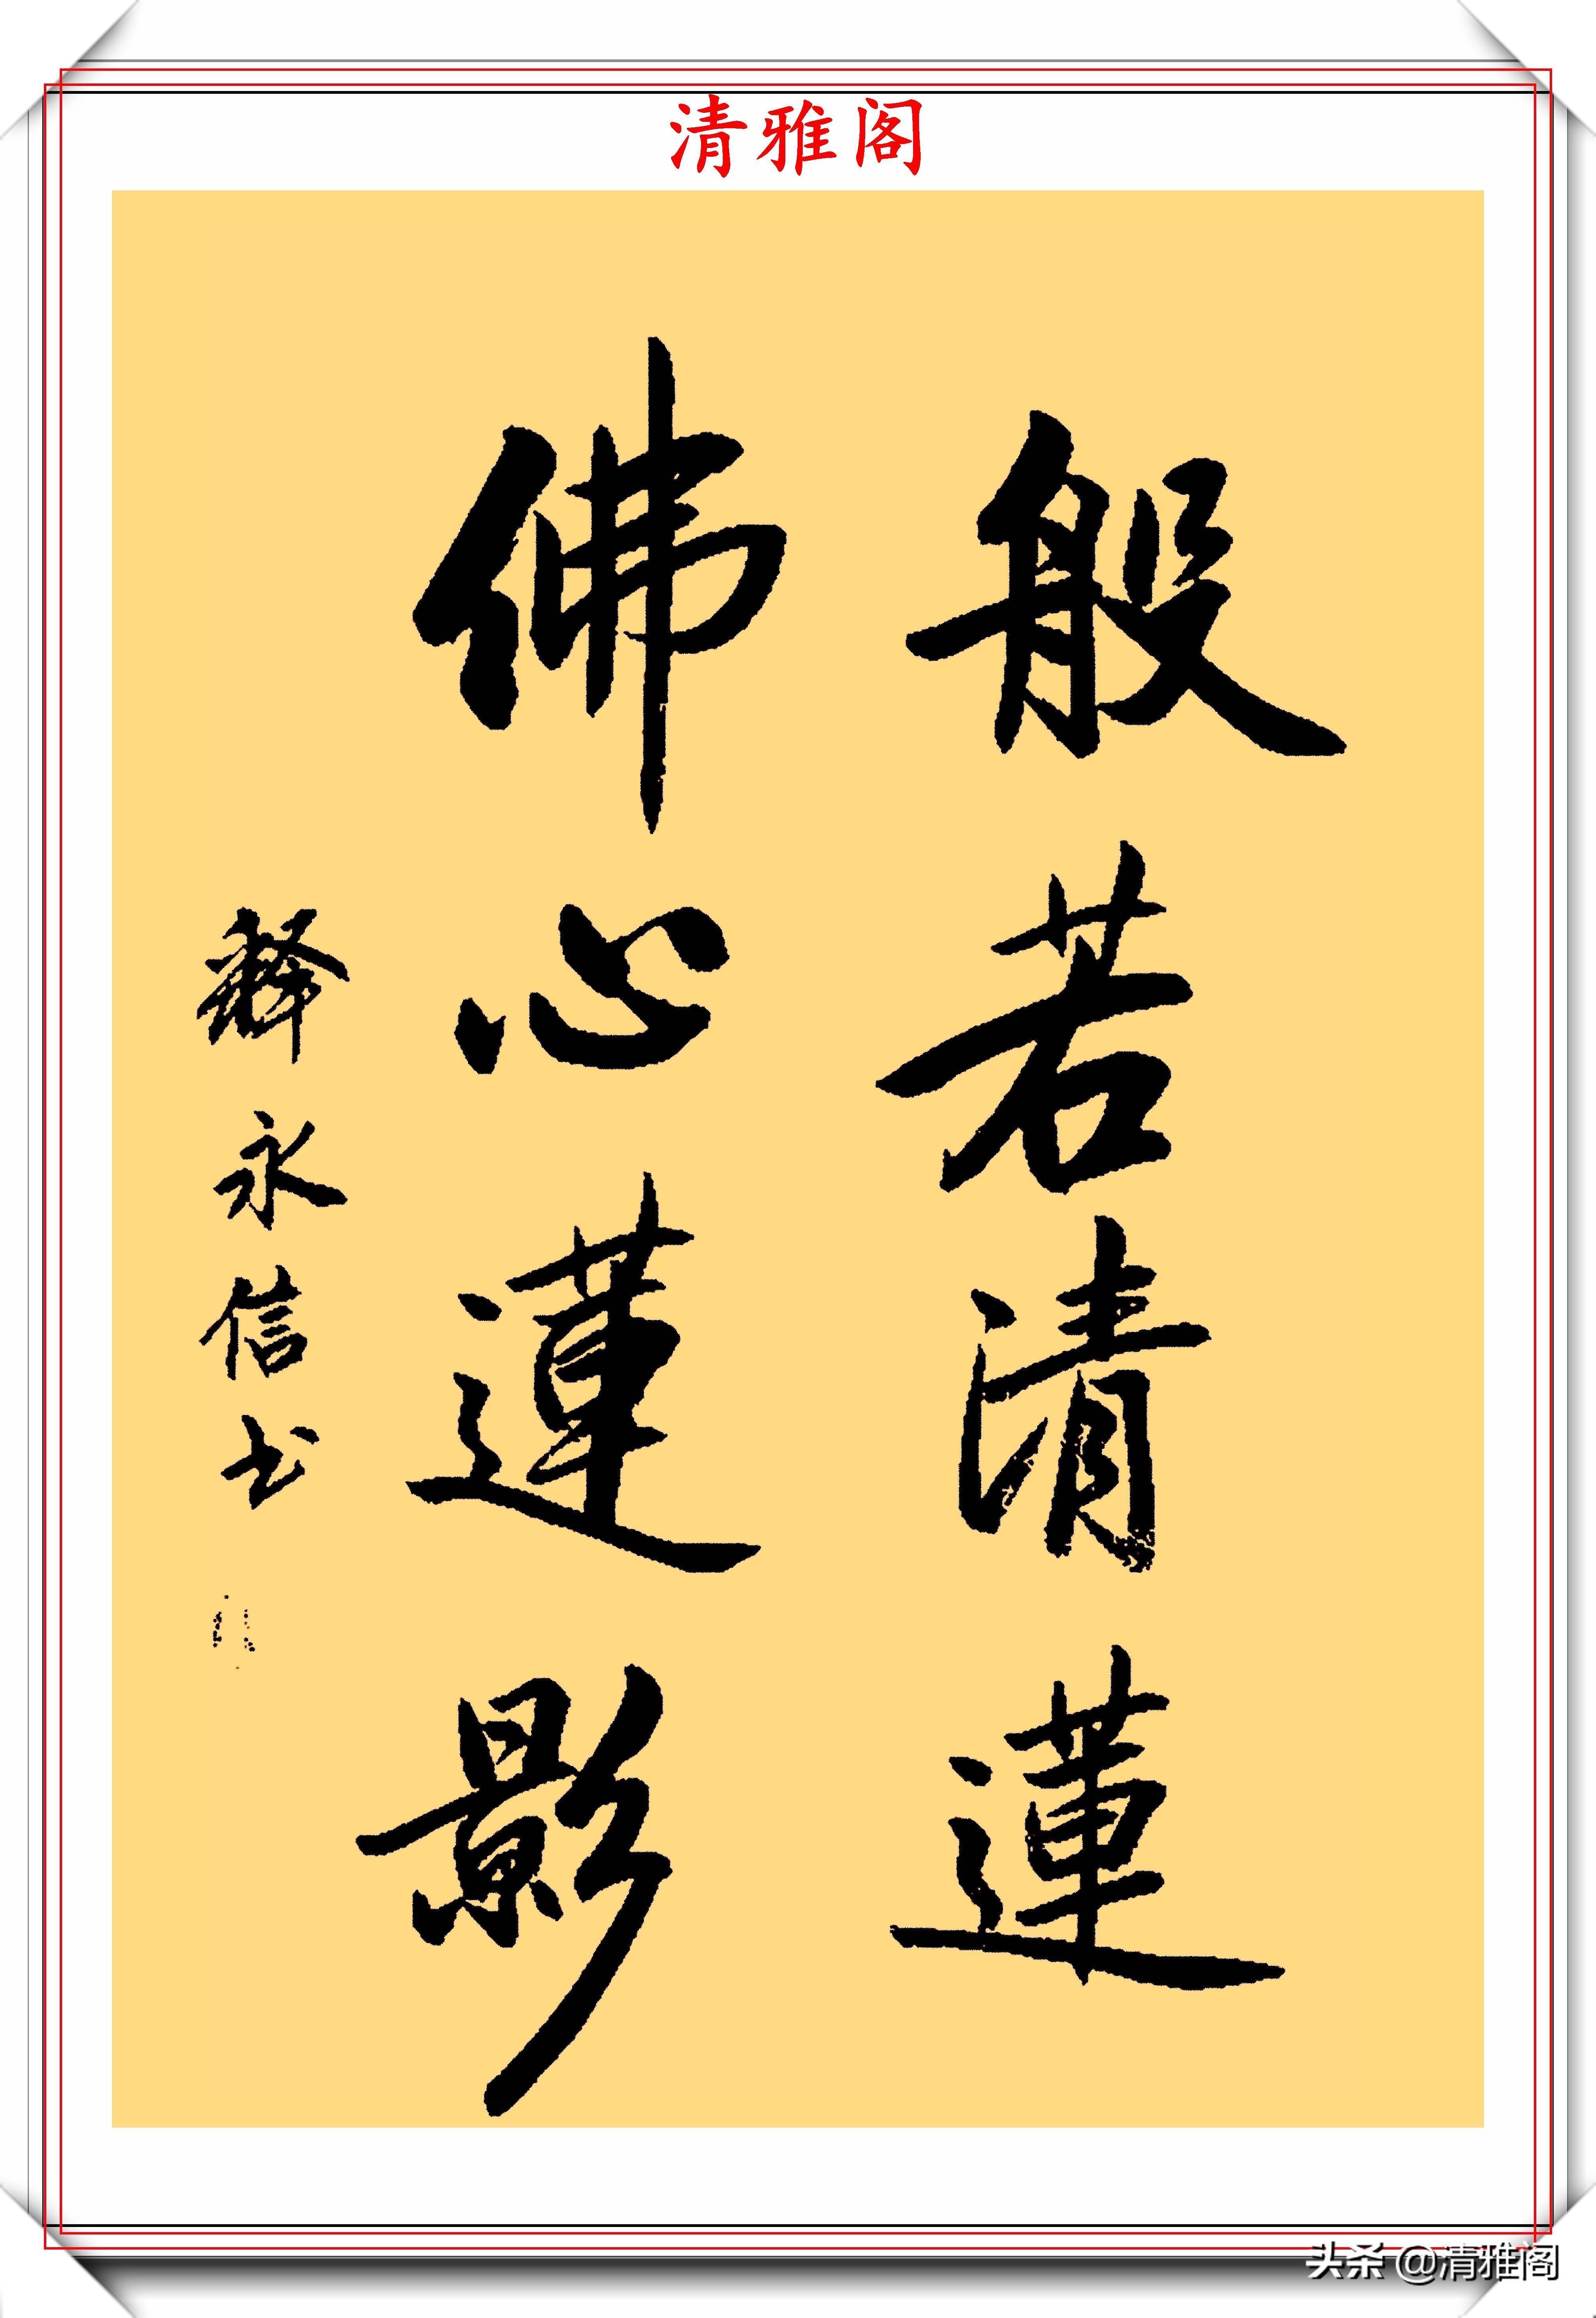 清雅阁
般若清蓮
佛心蓮影
釋永信书
头条 @清雅阁